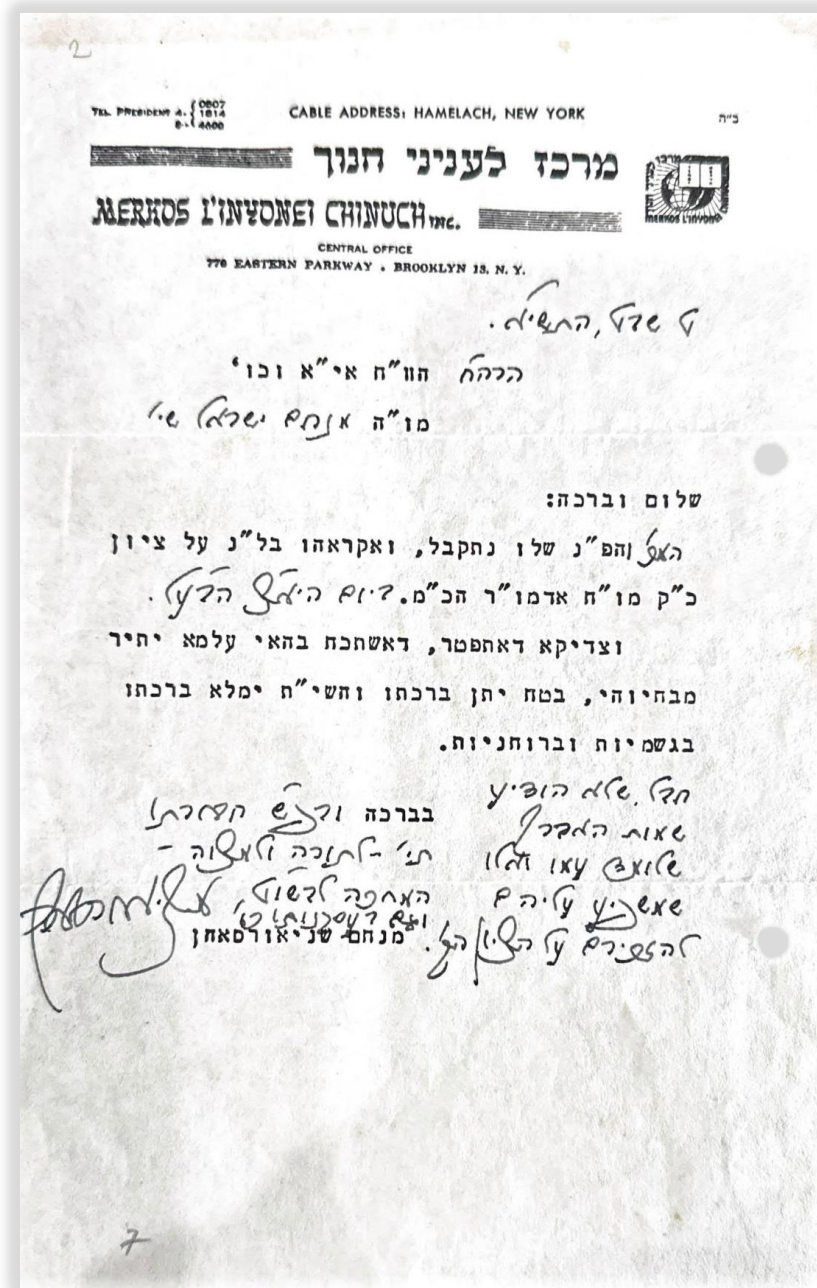 2
TEL. PRESIDENT 4- 0507 1814
8- 4600
CABLE ADDRESS: HAMELACH, NEW YORK
ב״ה
מרכז לעניני חנוך
MERKOS L'INYONEI CHINUCH INC.
MERKOS L'INYONEI
CENTRAL OFFICE
770 EASTERN PARKWAY . BROOKLYN 13, N. Y.
ט שבט, התשי״א.
הרה״ח הוו״ח אי״א וכו׳
מו״ה מנחם ישראל שי׳
שלום וברכה:
והפ״נ שלו נתקבל, ואקראהו בל״נ על ציון
כ״ק מו״ח אדמו״ר הכ״מ. ביום היא״צ הבע״ל.
וצדיקא דאתפטר, דאשתכח בהאי עלמא יתיר
מבחיוהי, בטח יתן ברכתו והשי״ת ימלא ברכתו
בגשמיות וברוחניות.
חבל שלא הודיע
שמות האברך
שלומד עמו ואלו
שמשפיע עליהם
להזכירם על הציון הק׳.
בברכה
לתורה ולמצוה -
המחכה לבשו״ט,
מנחם שניאורסאהן
7